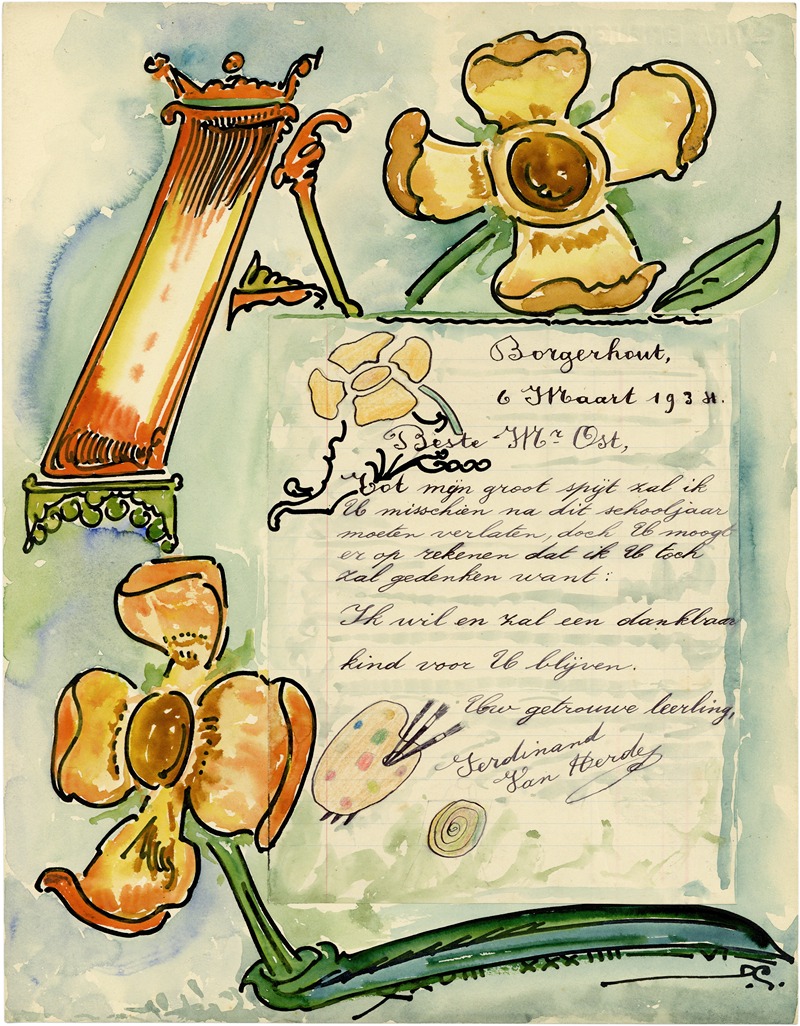 Borgerhout,
6 Maart 1934.
Beste Mr Ost,
Tot mijn groot spijt zal ik
U misschien na dit schooljaar
moeten verlaten, doch U moogt
er op rekenen dat ik U toch
zal gedenken want:
Ik wil en zal een dankbaar
kind voor U blijven.
Uw getrouwe leerling,
Ferdinand
Van Herde